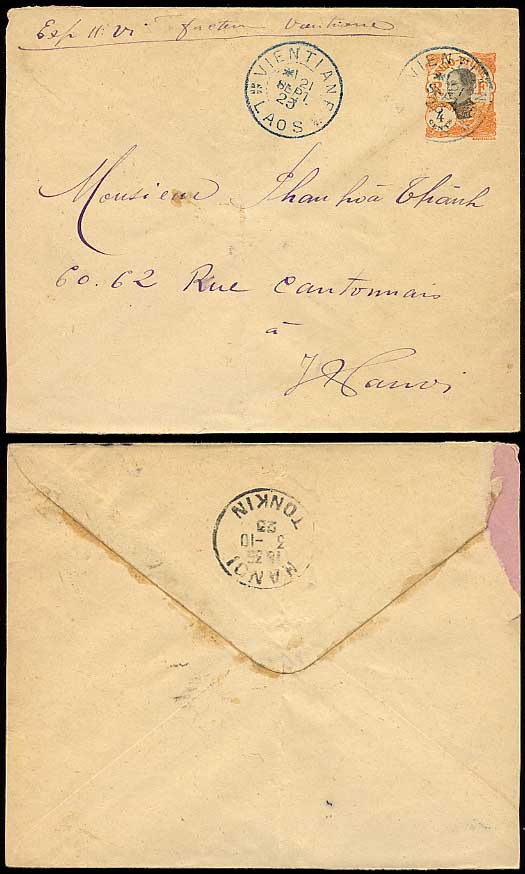 Exp H: Vi facteur Vientiane
VIENTIANE
*1
21
SEPT
23
LAOS
VIEN
4
CENTS
Monsieur Phan hoà Thành
60.62 Rue Cantonnais
à
Hanoi
TONKIN
23
3 -10
HANOI